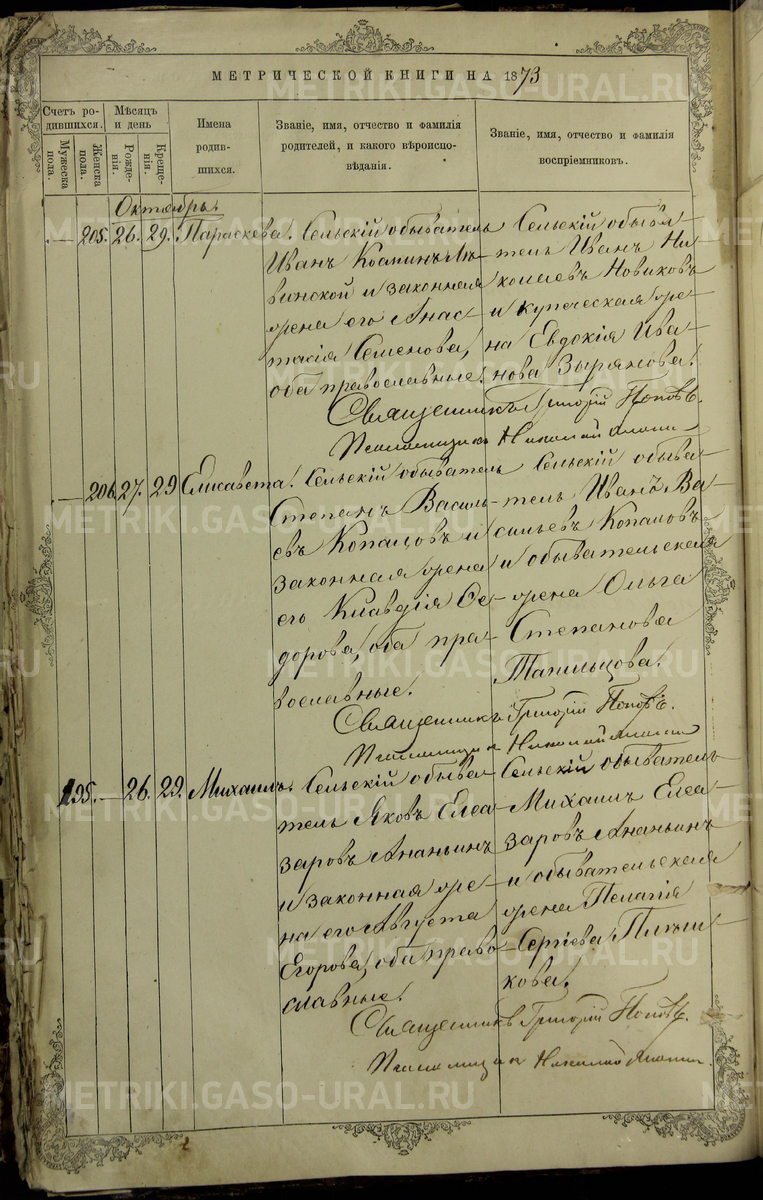 МЕТРИЧЕСКОЙ КНИГИ НА 1873
Счетъ ро-
дившихся.
Мужеска
пола.
Женска
пола.
Мѣсяцъ
и день
Рожде-
нія.
Креще-
нія.
Имена
родив-
шихся.
Званіе, имя, отчество и фамилія
родителей, и какого вѣроиспо-
вѣданія.
Званіе, имя, отчество и фамилія
воспріемниковъ.
Октябрь.
205. 26. 29. Параскева.
Сельскій обыватель
Иванъ
и законная
жена его Анас-
тасія Семенова,
оба православные.
Сельскій обыва-
тель Иванъ Ни-
колаевъ Новиковъ
и купеческая же-
на Евдокія Ива-
нова Зырянова.
Священникъ Григорій Поповъ.
Псаломщикъ Николай
206. 27. 29 Елисавета.
Сельскій обыватель
Степанъ Василь-
евъ Копаловъ и
законная жена
его Клавдія Ѳе-
дорова, оба пра-
вославные.
Сельскій обыва-
тель Иванъ Ва-
сильевъ Копаловъ
и обывательская
жена Ольга
Степанова
Священникъ Григорій Поповъ.
Псаломщикъ Николай
195. 26. 29. Михаилъ.
Сельскій обыва-
тель Яковъ Елеа-
заровъ Ананьинъ
и законная же-
на его Августа
Егорова, оба право-
славные.
Сельскій обыватель
Михаилъ Елеа-
заровъ Ананьинъ
и обывательская
жена Пелагія
Сергіева
Священникъ Григорій Поповъ.
Псаломщикъ Николай
METRIKI.GASO-URAL.RU